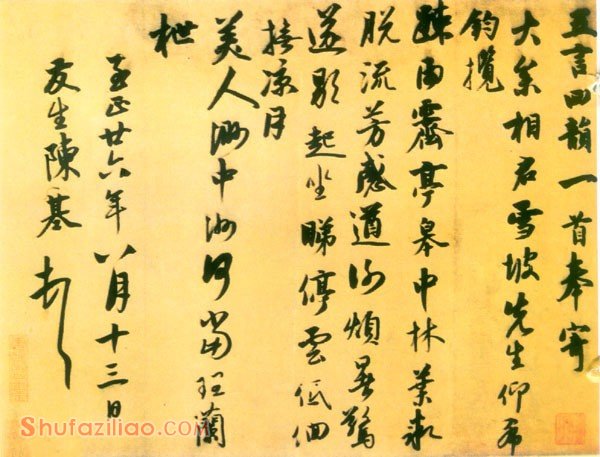 五言四韻一首奉寄
大參相君雪坡先生仰希
鈞攬
疎雨霑亭皋中林葉
脫流芳感謝煩暑驚
遂歇起坐睇停雲低佪
涼月
美人渺中洲何當理蘭
枻
至正廿六年八月十三日
友生陳基
Shufaziliao.com